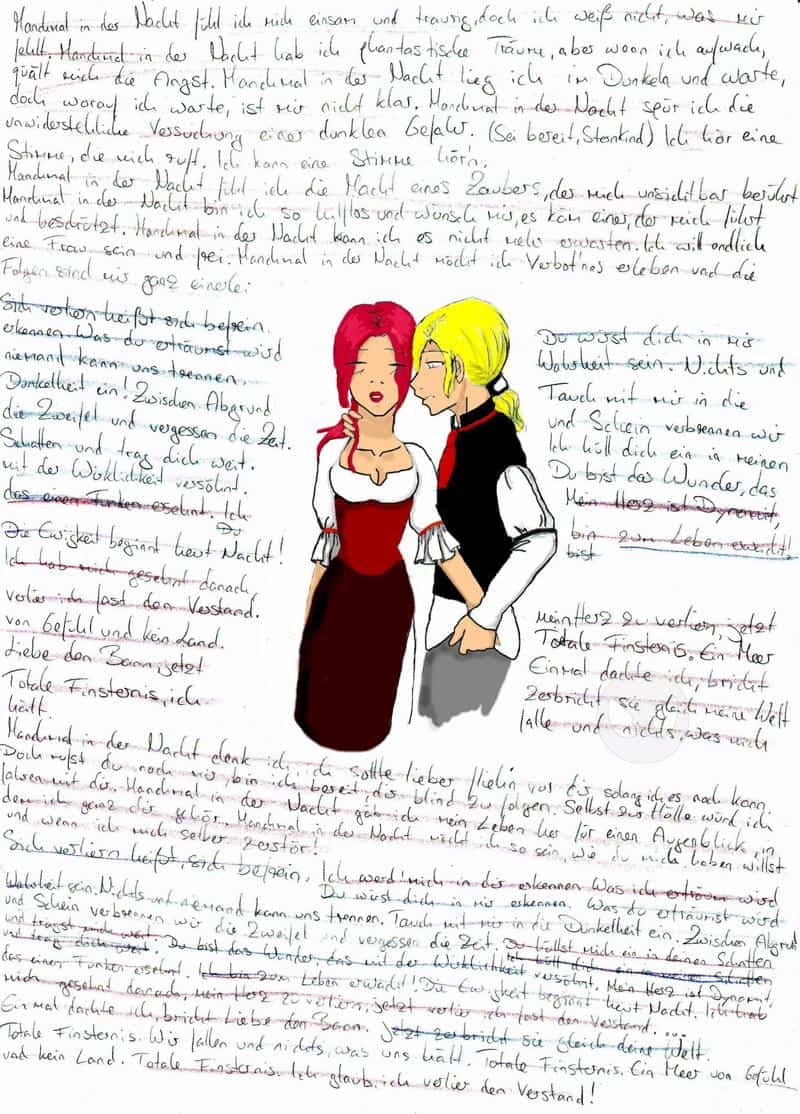 Manchmal in der Nacht fühl ich mich einsam und traurig, doch ich weiß nicht, was mir
fehlt. Manchmal in der Nacht hab ich phantastische Träume, aber wenn ich aufwach,
quält mich die Angst. Manchmal in der Nacht lieg ich im Dunkeln und warte,
doch worauf ich warte, ist mir nicht klar. Manchmal in der Nacht spür ich die
unwiderstehliche Versuchung einer dunklen Gefahr. (Sei bereit, Sternkind) Ich hör eine
Stimme, die mich ruft. Ich kann eine Stimme hör'n.
Manchmal in der Nacht fühl ich die Macht eines Zaubers, der mich unsichtbar berührt
Manchmal in der Nacht bin ich so hilflos und wünsch mir, es käm einer, der mich führt
und beschützt. Manchmal in der Nacht kann ich es nicht mehr erwarten. Ich will endlich
eine Frau sein und frei. Manchmal in der Nacht möcht ich Verbot'nes erleben und die
Folgen sind mir ganz einerle:
Sich verliern heißt sich befrein.
Du wirst dich in mir
erkennen. Was du erträumst wird
Wahrheit sein. Nichts und
niemand kann uns trennen.
Tauch mit mir in die
Dunkelheit ein! Zwischen Abgrund
und Schein verbrennen wir
die Zweifel und vergessen die Zeit.
Ich hüll dich ein in meinen
Schatten und trag dich weit.
Du bist das Wunder, das
mit der Wirklichkeit versöhnt.
Mein Herz ist Dynamit,
das einen Funken ersehnt. Ich
bin zum Leben erwacht!
Du
bist
Die Ewigkeit beginnt heut Nacht!
Ich hab mich gesehnt danach,
mein Herz zu verliern, jetzt
verlier ich fast den Verstand.
Totale Finsternis. Ein Meer
von Gefühl und kein Land.
Einmal dachte ich, bricht
Liebe den Bann, jetzt
zerbricht sie gleich meine Welt
Totale Finsternis, ich
falle und nichts, was mich
hält.
Manchmal in der Nacht denk ich, ich sollte lieber fliehn vor dir solang ich es noch kann.
Doch rufst du nach mir, bin ich bereit, dir blind zu folgen. Selbst zur Hölle würd ich
fahren mit dir. Manchmal in der Nacht gäb ich mein Leben her für einen Augenblick, in
dem ich ganz dir gehör. Manchmal in der Nacht möcht ich so sein, wie du mich haben willst
und wenn ich mich selber zerstör!
Sich verliern heißt, sich befrein. Ich werd' mich in dir erkennen. Was ich erträum wird
Du wirst dich in mir erkennen. Was du erträumst wird
Wahrheit sein. Nichts und niemand kann uns trennen. Tauch mit mir in die Dunkelheit ein. Zwischen Abgrund
und Schein verbrennen wir die Zweifel und vergessen die Zeit. Du hüllst mich ein in deinen Schatten
und trägst mich weit. Ich hüll dich ein in meinen Schatten
und trag dich weit. Du bist das Wunder, das mit der Wirklichkeit versöhnt. Mein Herz ist Dynamit,
das einen Funken ersehnt. Ich bin zum Leben erwacht! Die Ewigkeit beginnt heut Nacht. Ich hab
mich gesehnt danach, mein Herz zu verliern, jetzt verlier ich fast den Verstand. ....
Einmal dachte ich, bricht Liebe den Bann. Jetzt zerbricht sie gleich deine Welt.
Totale Finsternis. Wir fallen und nichts, was uns hält. Totale Finsternis. Ein Meer von Gefühl
und kein Land. Totale Finsternis. Ich glaub, ich verlier den Verstand!